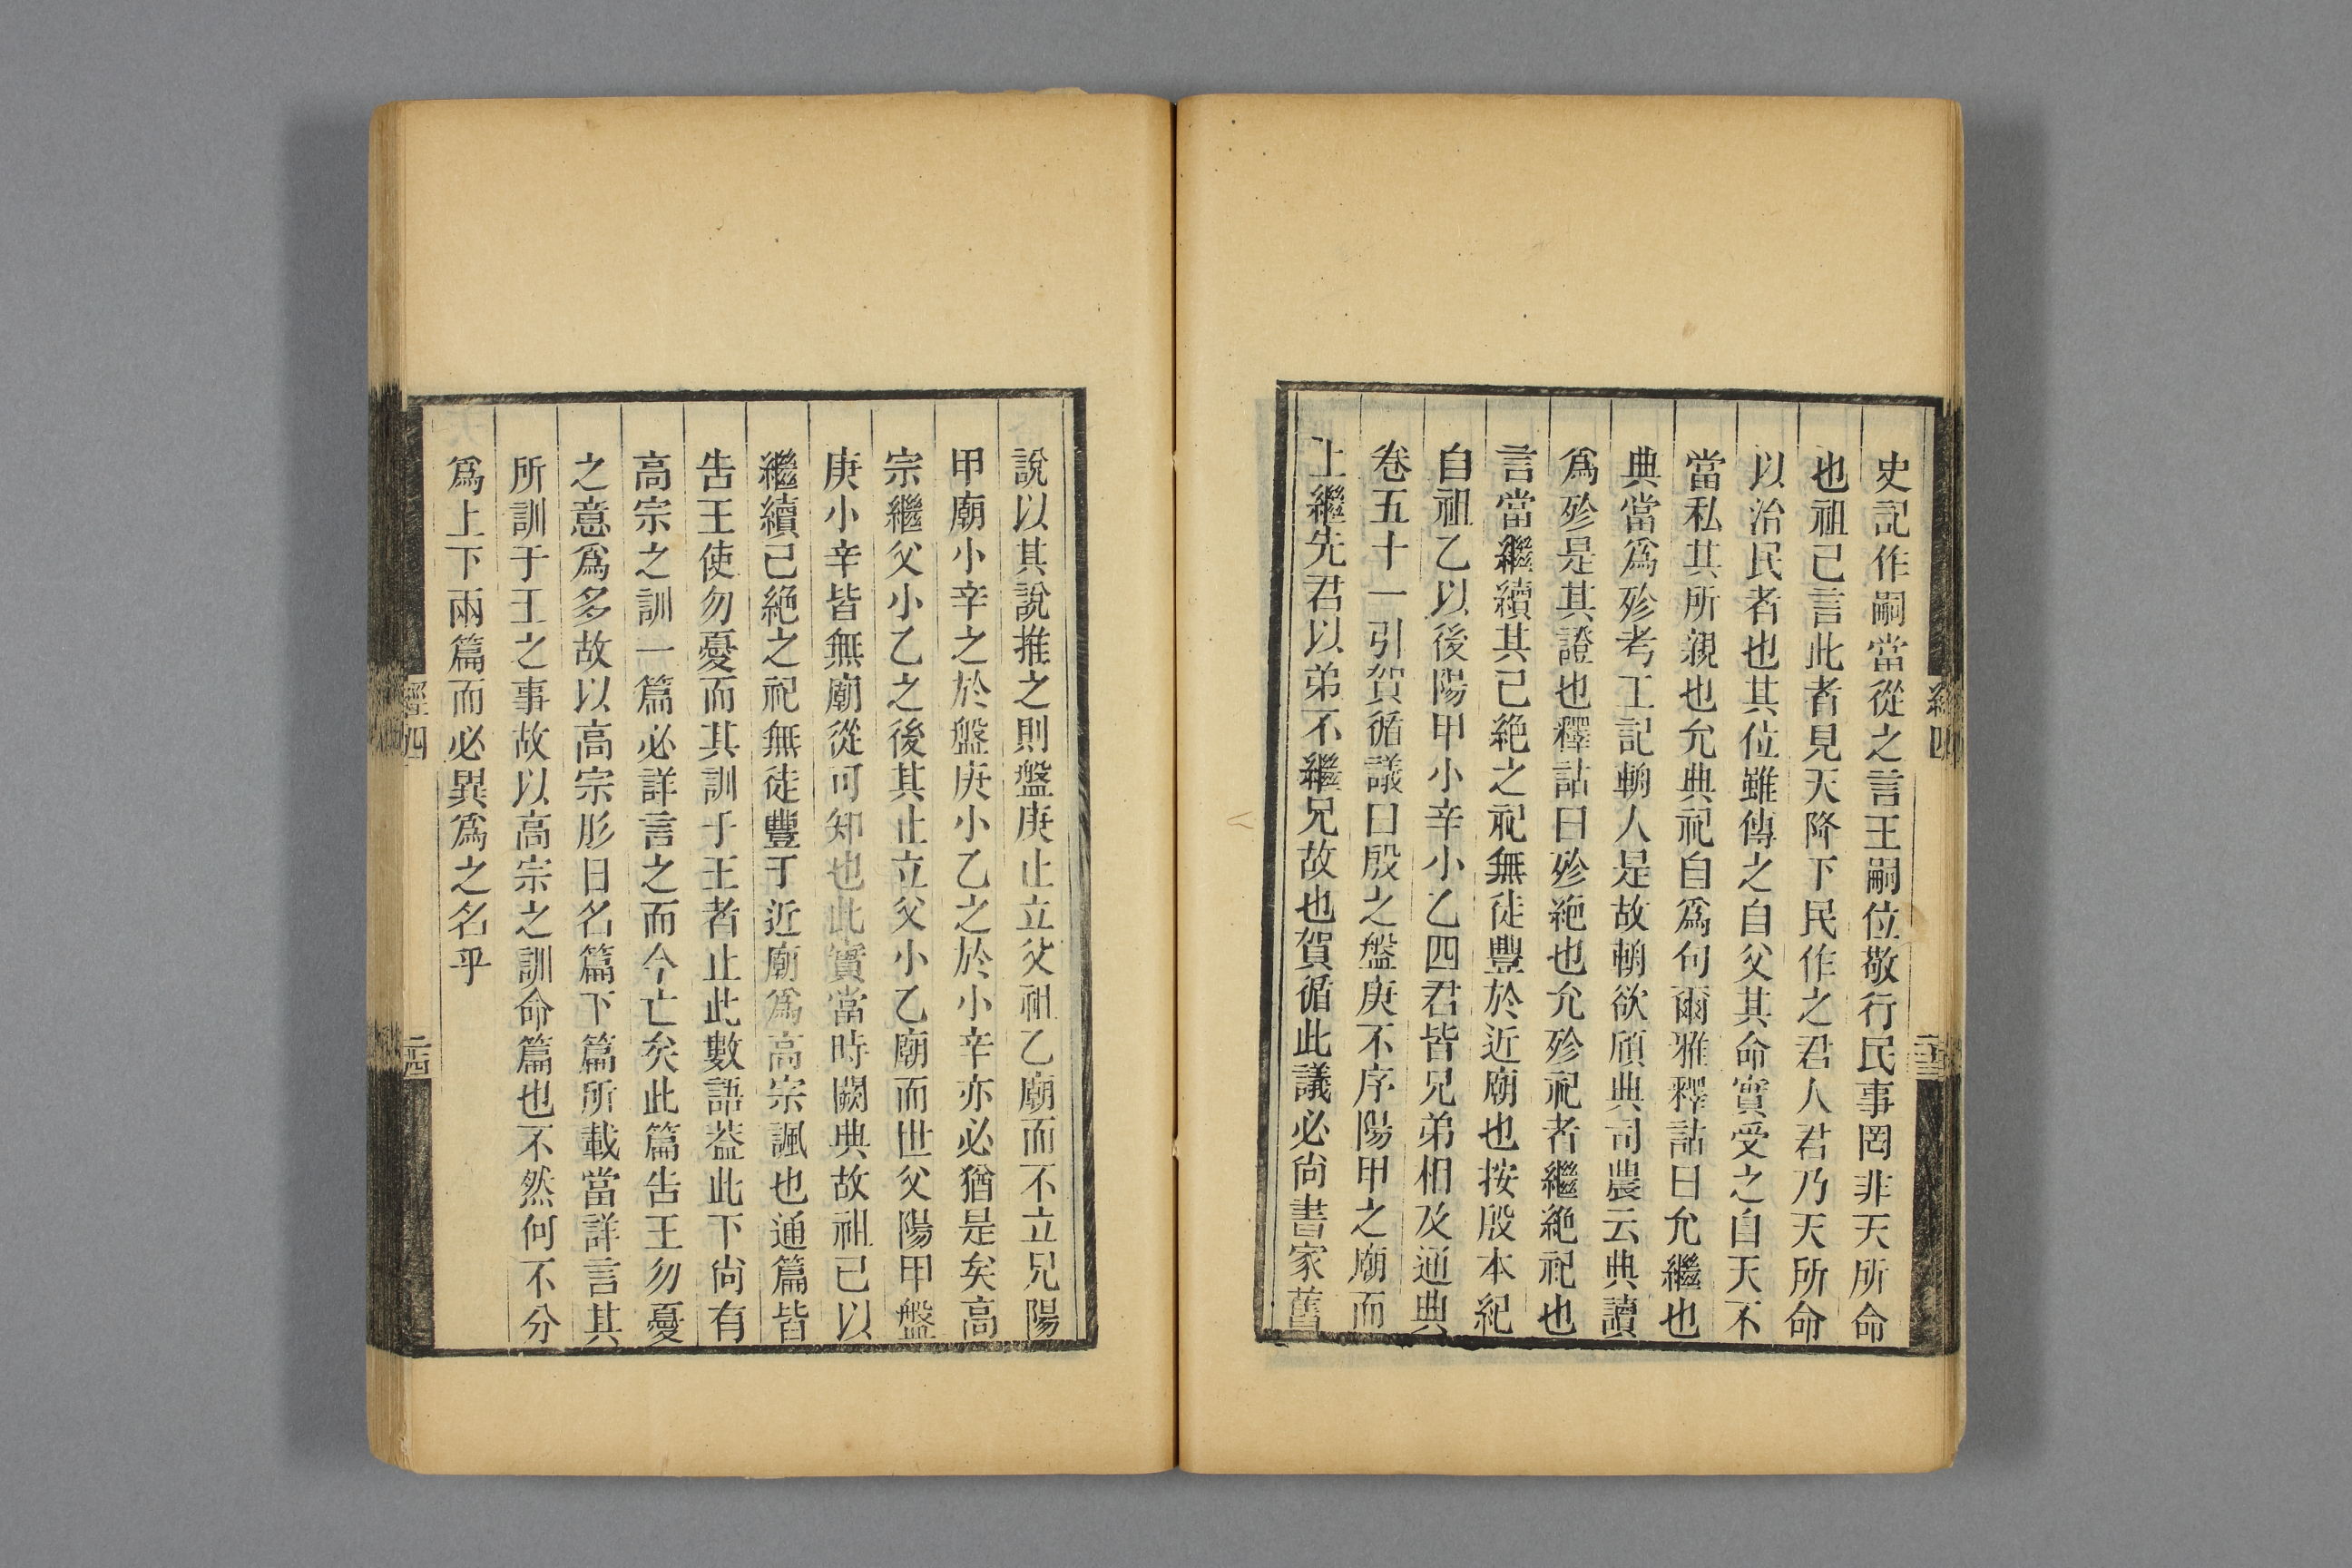 史記作嗣當從之言王嗣位敬行民事罔非天所命
也祖己言此者見天降下民作之君人君乃天所命
以治民者也其位雖傳之自父其命實受之自天不
當私其所親也允典祀自爲句爾雅釋詁曰允繼也
典當爲殄考工記輈人是故輈欲頎典司農云典讀
爲殄是其證也釋詁曰殄絶也允殄祀者繼絶祀也
言當繼續其已絶之祀無徒豐於近廟也按殷本紀
自祖乙以後陽甲小辛小乙四君皆兄弟相及通典
卷五十一引賀循議曰殷之盤庚不序陽甲之廟而
上繼先君以弟不繼兄故也賀循此議必尚書家舊
經四
二十三
說以其說推之則盤庚止立父祖乙廟而不立兄陽
甲廟小辛之於盤庚小乙之於小辛亦必猶是矣高
宗繼父小乙之後其止立父小乙廟而世父陽甲盤
庚小辛皆無廟從可知也此實當時闕典故祖己以
繼續已絶之祀無徒豐于近廟爲高宗諷也通篇皆
告王使勿憂而其訓于王者止此數語葢此下尚有
高宗之訓一篇必詳言之而今亡矣此篇告王勿憂
之意爲多故以高宗肜日名篇下篇所載當詳言其
所訓于王之事故以高宗之訓命篇也不然何不分
爲上下兩篇而必異爲之名乎
經四
二十四